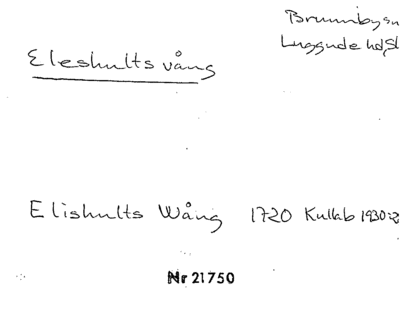 Brunnby sn
Luggude hd, Sk
Eleshults vång
Elishults Wång 1720 Kullab 1930:2
Nr 21750